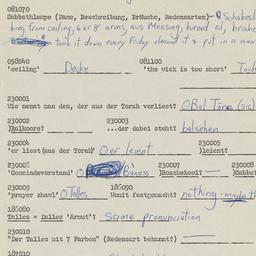 081070
Sabbathlampe (Name, Beschreibung, Bräuche, Redensarten)- O Schabesl
from ceiling, 6 or 8 arms, aus Messing, burned oil,
took it down every Friday cleaned it + put in a new
058040 081100
'ceiling' Decke 'the wick is too short' Toch
230001
Wie nennt man den, der aus der Torah vorliest? O Bal Tōre (sic)
230002 230003
[Balkore?] ...der dabei steht?
230004 230005
'er liest(aus der Torah)' Oer leient [leient?
230006 230007 230008
'Gemeindevorstand' O Pārness [Roschekool? — [Gabbe
230009 185090
'prayer shawl' O Talles Womit festgemacht? nothing - maybe
185080
Talles = Dalles 'Armut'? Same pronunciation
230010
"Der Talles mit 7 Farben" (Redensart bekannt?) —
187010